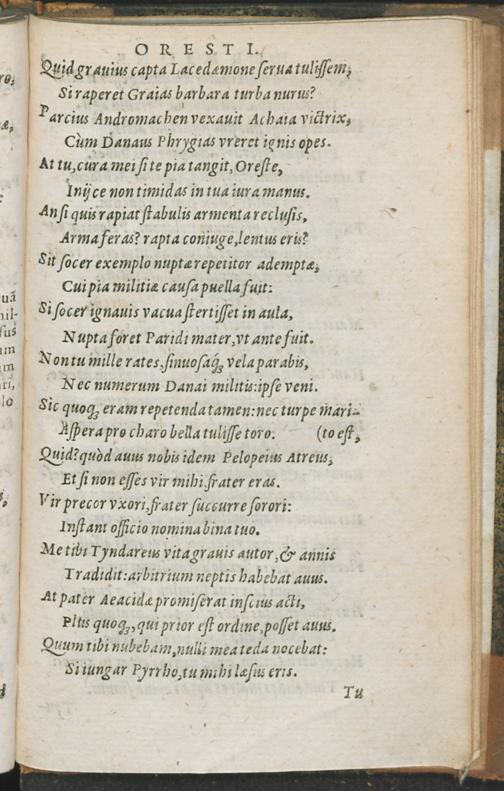 ORESTI.
Quid grauius capta Lacedæmone serua tulissem,
Si raperet Graias barbara turba nurus?
Parcius Andromachen vexauit Achaia victrix,
Cùm Danaus Phrygias vreret ignis opes.
At tu, cura mei si te pia tangit, Oreste,
Inijce non timidas in tua iura manus.
An si quis rapiat stabulis armenta reclusis,
Arma feras? rapta coniuge, lentus eris?
Sit socer exemplo nuptæ repetitor ademptæ,
Cui pia militiæ causa puella fuit:
Si socer ignauis vacua stertisset in aula,
Nupta foret Paridi mater, vt ante fuit.
Non tu mille rates, sinuosaq́; vela parabis,
Nec numerum Danai militis: ipse veni.
Sic quoq; eram repetenda tamen: nec turpe mari-
Aspera pro charo bella tulisse toro. (to est,
Quid? quòd auus nobis idem Pelopeius Atreus,
Et si non esses vir mihi, frater eras.
Vir precor vxori, frater succurre sorori:
Instant officio nomina bina tuo.
Me tibi Tyndareus vita grauis autor, & annis
Tradidit: arbitrium neptis habebat auus.
At pater Aeacidæ promiserat inscius acti,
Plus quoq;, qui prior est ordine, posset auus.
Quum tibi nubebam, nulli mea teda nocebat:
Si iungar Pyrrho, tu mihi læsus eris.
Tu